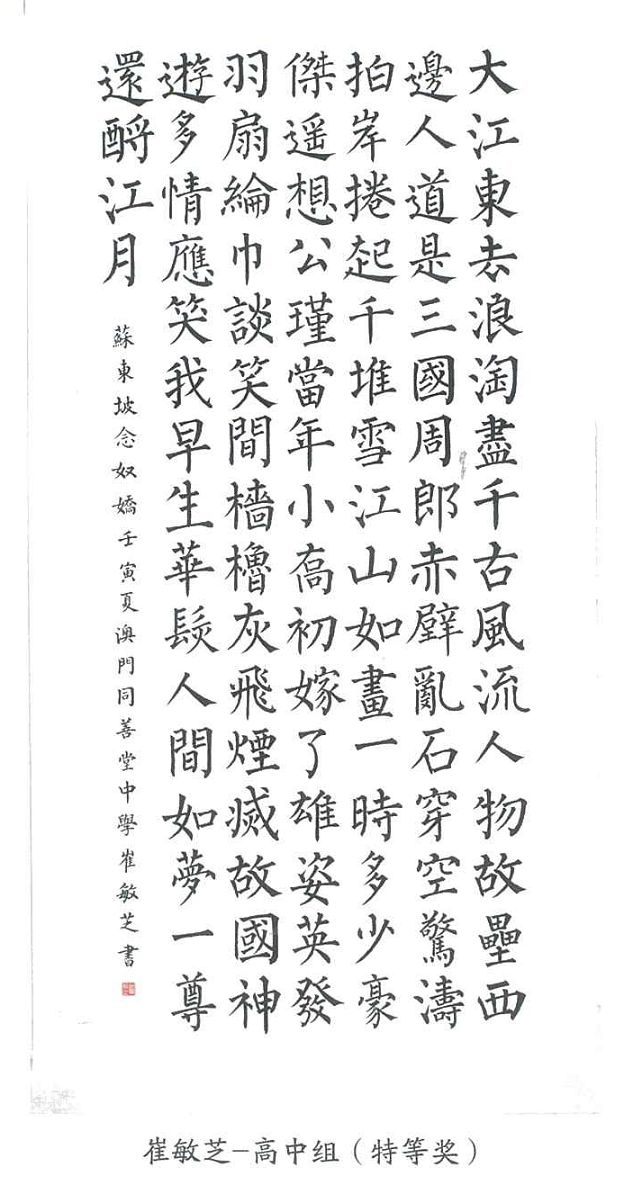 大江東去浪淘盡千古風流人物故壘西
邊人道是三國周郎赤壁亂石穿空驚濤
拍岸捲起千堆雪江山如畫一時多少豪
傑遥想公瑾當年小喬初嫁了雄姿英發
羽扇綸巾談笑間檣櫓灰飛煙滅故國神
遊多情應笑我早生華髮人間如夢一尊
還酹江月
蘇東坡念奴嬌壬寅夏澳門同善堂中學崔敏芝書
崔敏芝-高中组（特等奖）